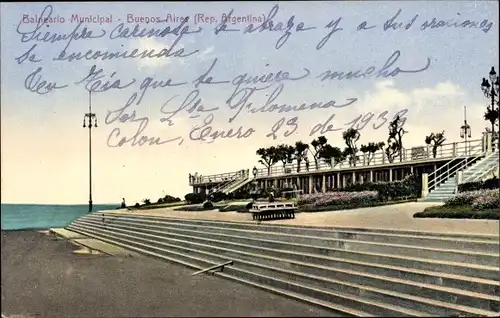 Balneario Municipal - Buenos Aires (Rep. Argentina)
Siempre carinosa te abraza y a tus oraciones
se encomienda
tu Tia que te quiere mucho
Sor Lta Filomena
Colon, Enero 23 de 1933